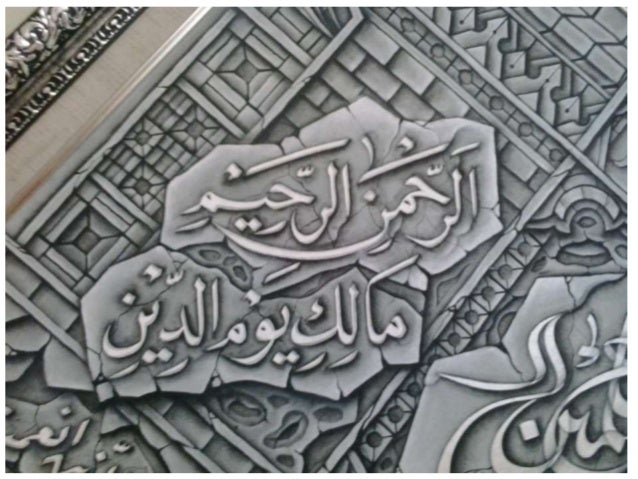 الرَّحْمٰنِ الرَّحِيْمِ
مَالِكِ يَوْمِ الدِّيْنِ
انعمت